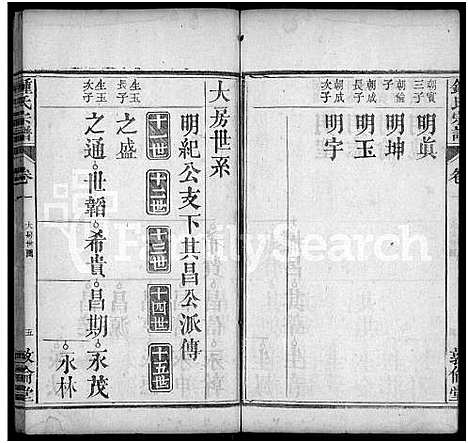 鍾氏宗譜
卷一
敦倫堂
朝寅三子 明眞
朝倫子 明坤
朝成長子 明玉
朝成次子 明宇
大房世系
明紀公支下其昌公派傳
十一世 十二世 十三世 十四世 十五世
生玉長子 之盛
生玉次子 之通 世韜 希貴 昌期 永茂
永林
鍾氏宗譜
卷一
大房世圖
五
敦倫堂
FamilySearch